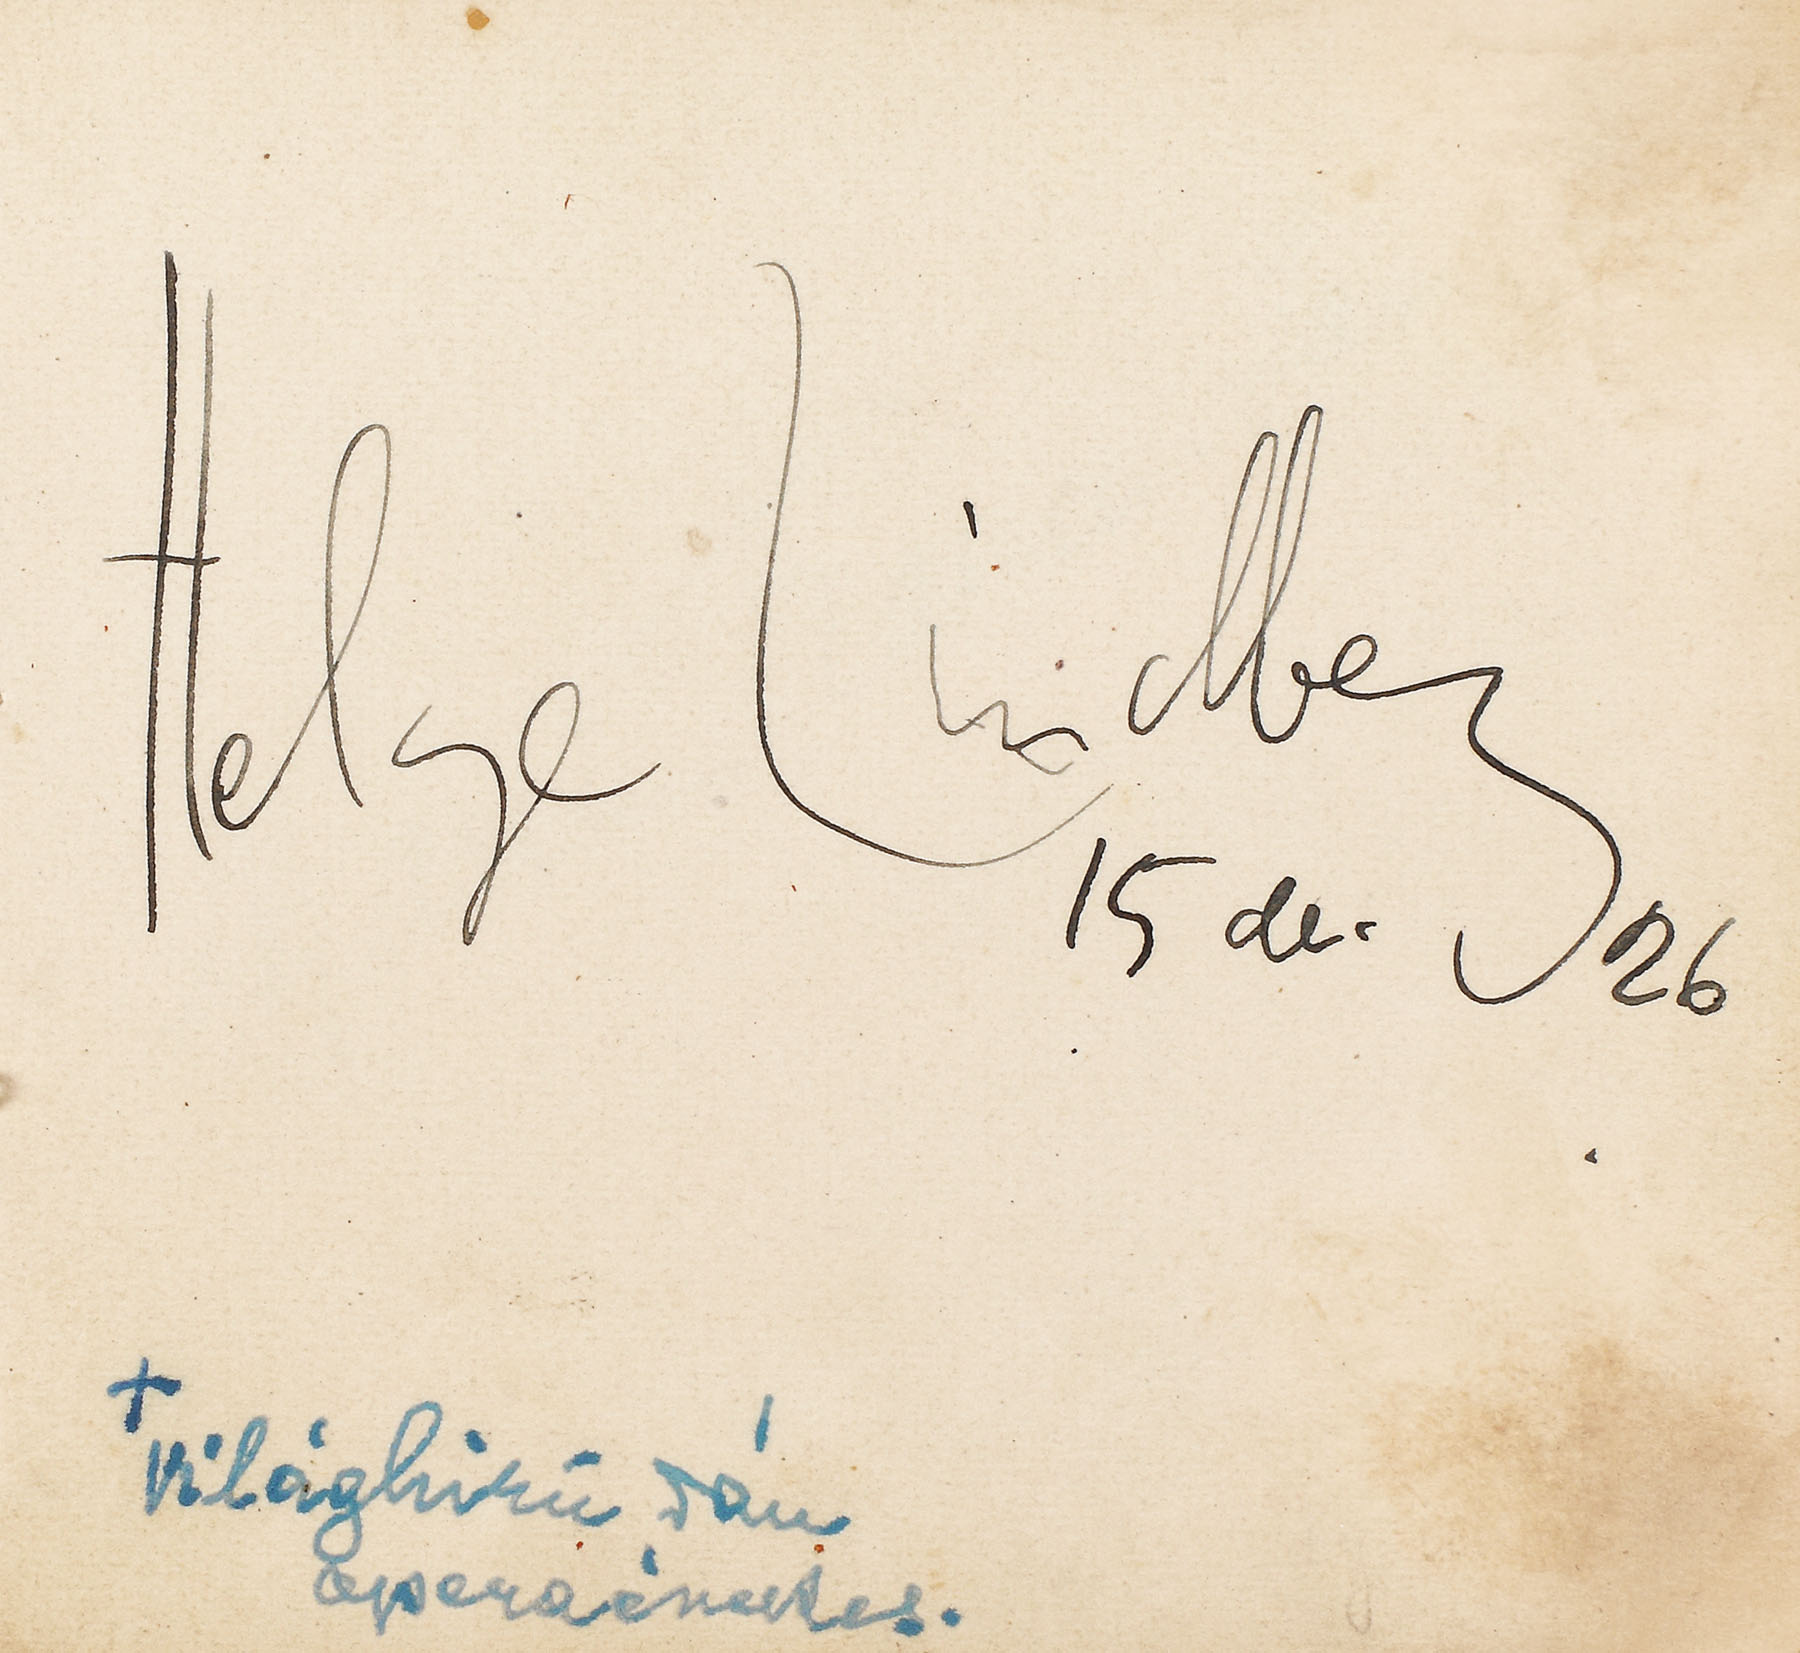 Helge Lindberg
15 dec. 26
+
Világhirű dán
operaénekes.